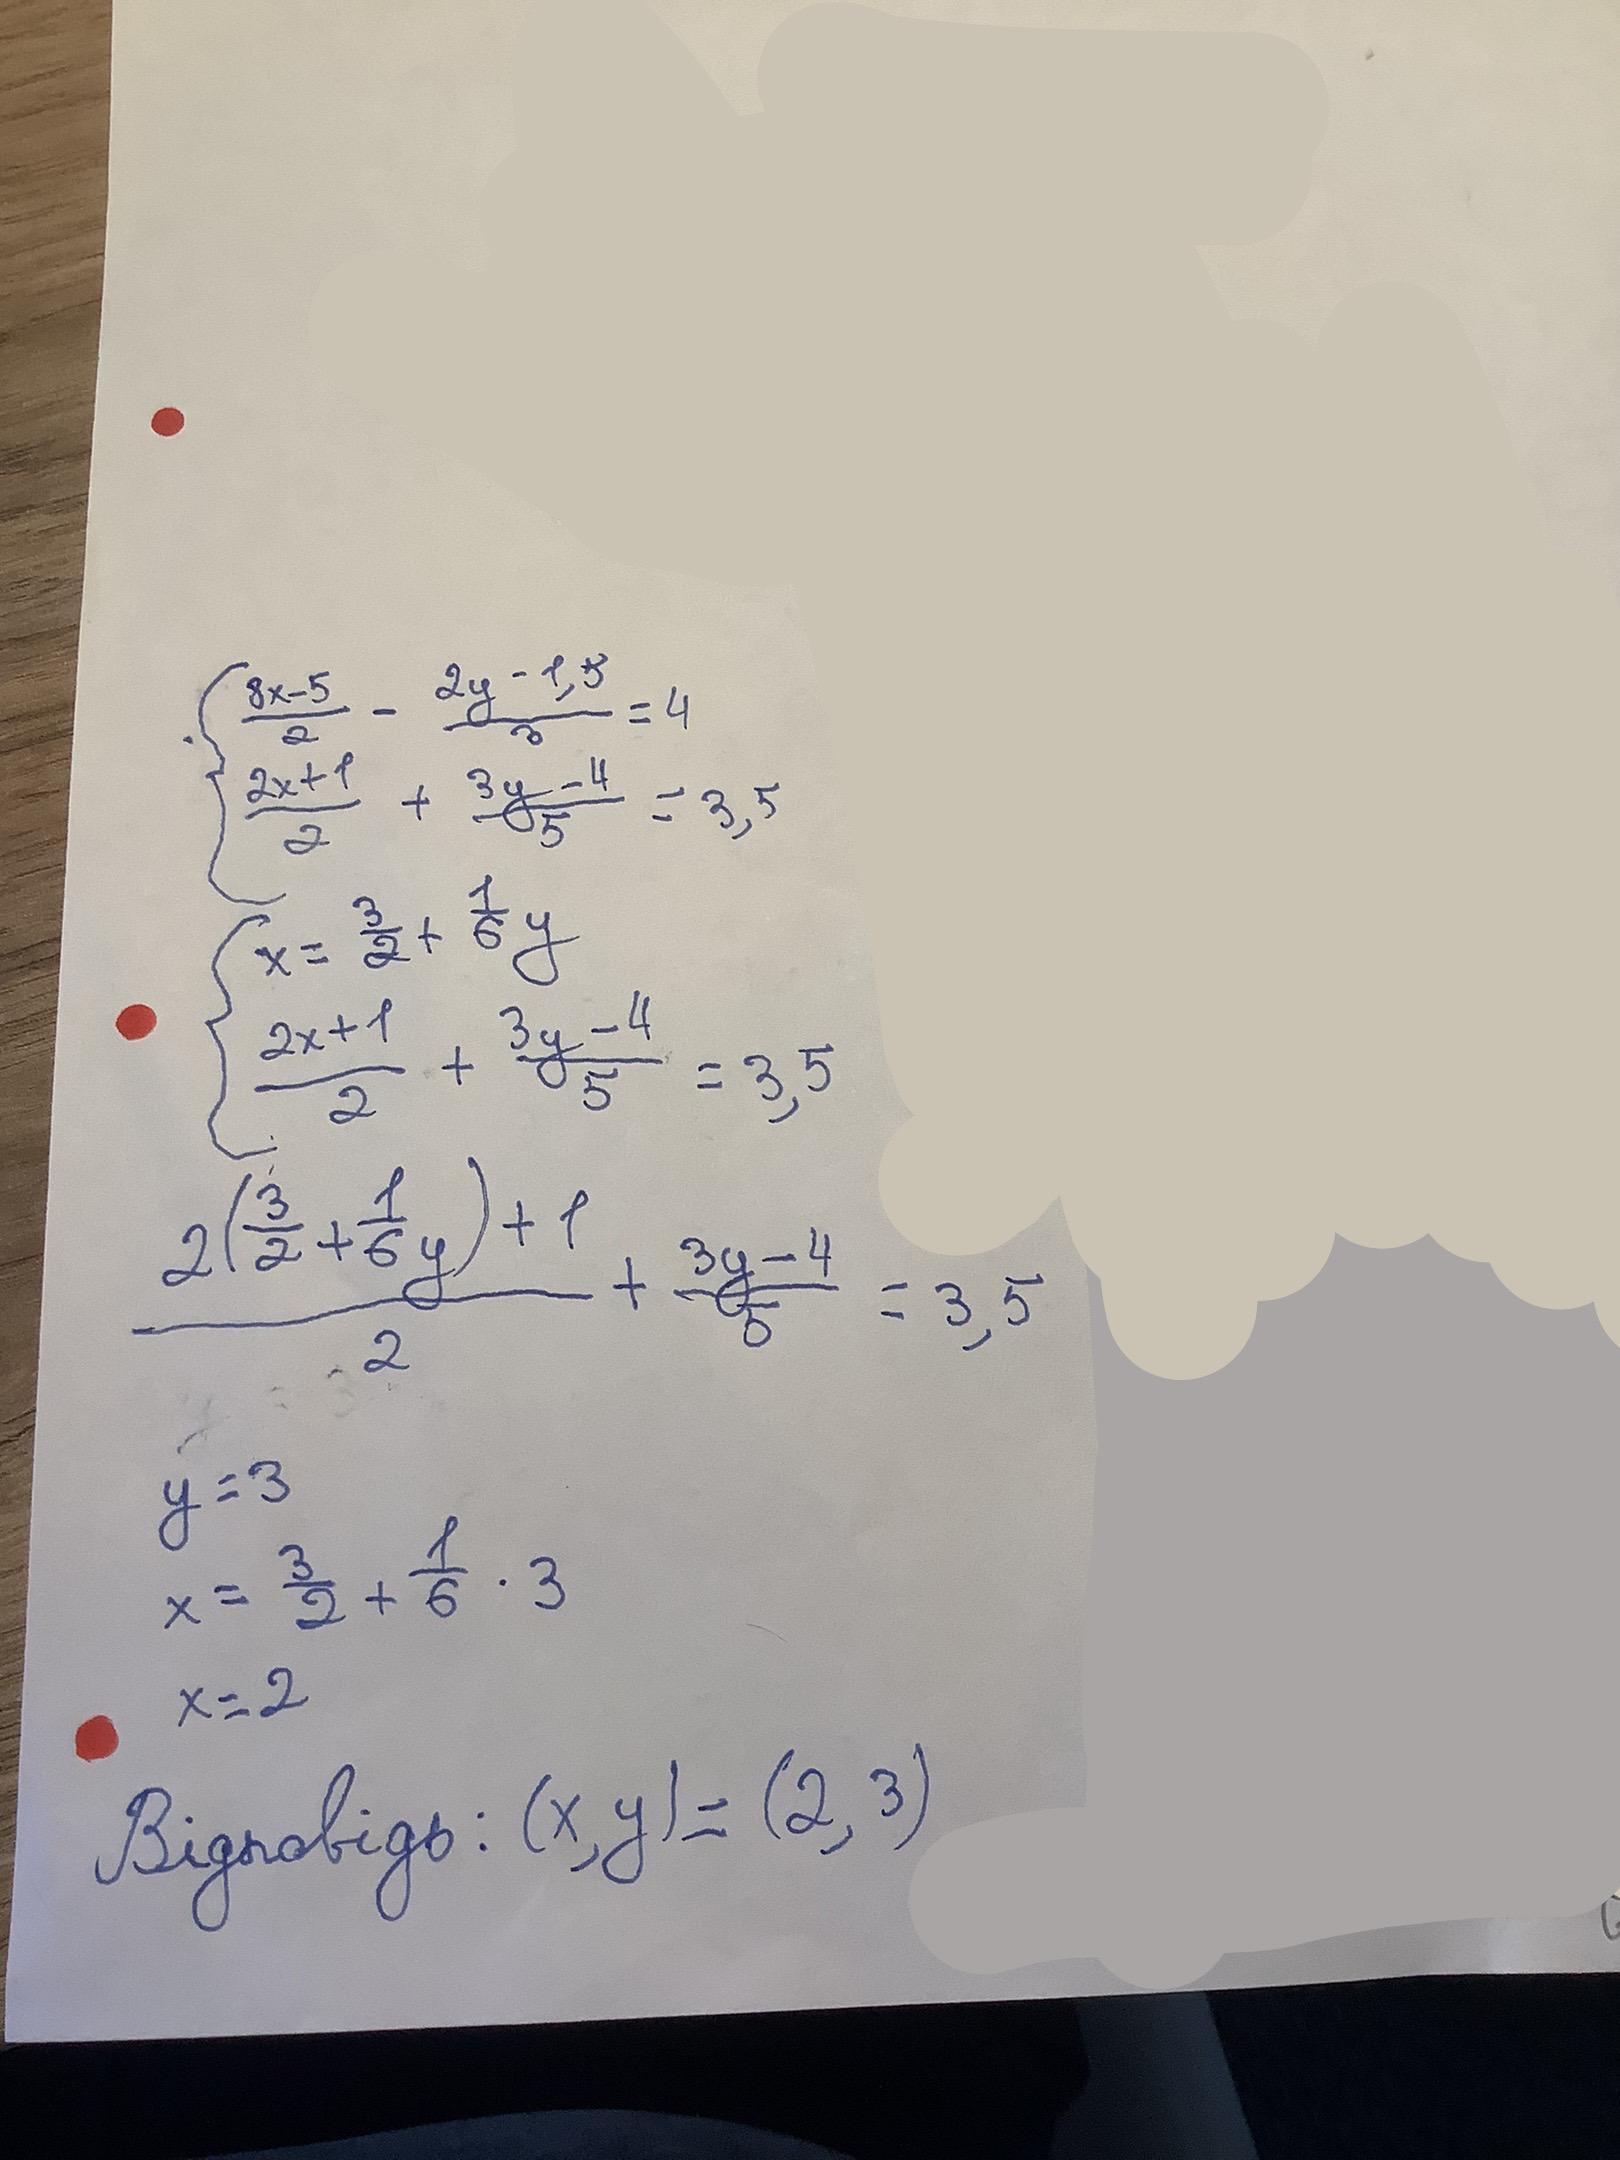 { (8x-5)/2 - (2y-1,5)/3 = 4
(2x+1)/2 + (3y-4)/5 = 3,5
{ x = 3/2 + 1/6 y
(2x+1)/2 + (3y-4)/5 = 3,5
(2(3/2 + 1/6 y) + 1)/2 + (3y-4)/5 = 3,5
y = 3
x = 3/2 + 1/6 · 3
x = 2
Відповідь: (x, y) = (2, 3)